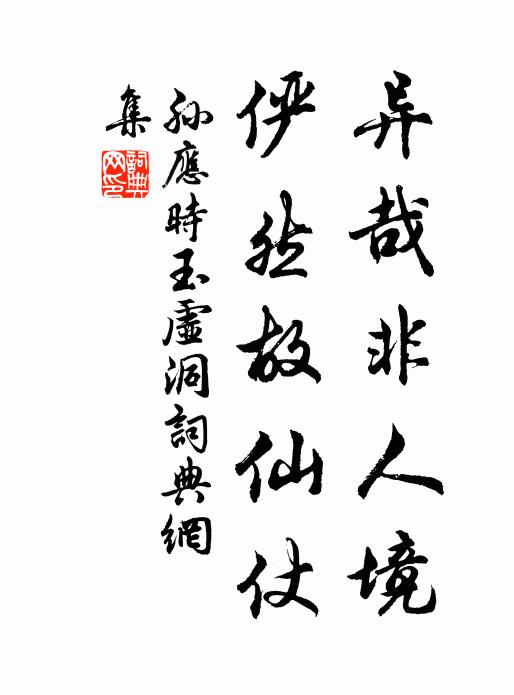 异哉非人境
俨然故仙仗
孙應時玉虛洞詞典網
集
詞典
网印